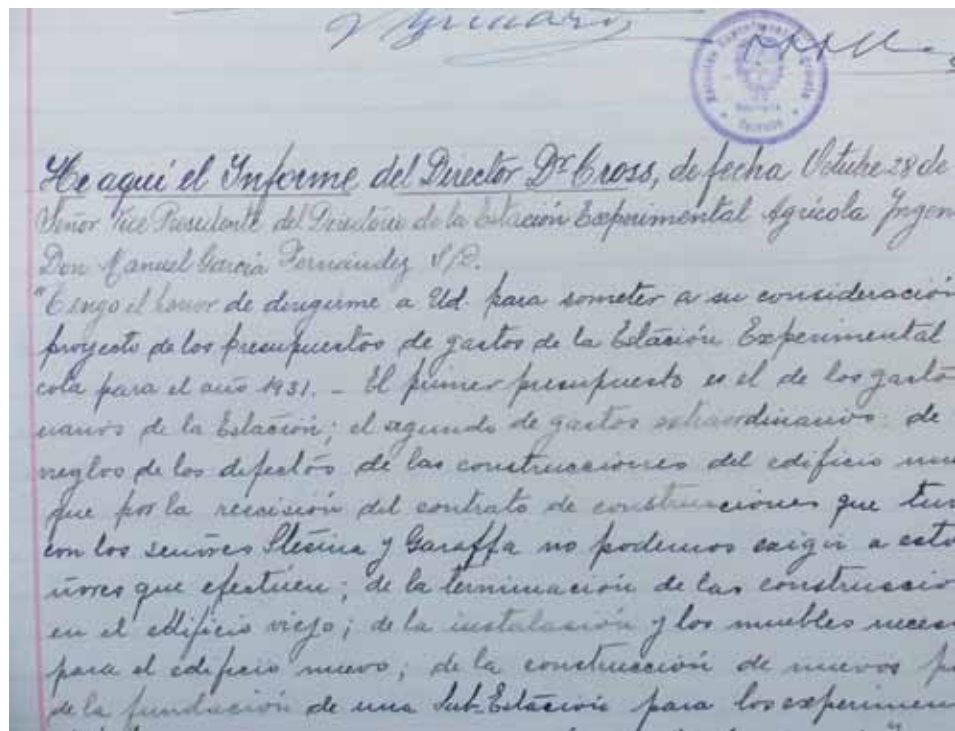 Estación Experimental Agrícola
Tucumán
He aquí el Informe del Director Dr Cross, de fecha Octubre 28 de
Señor Vice Presidente del Directorio de la Estación Experimental Agrícola Ingen
Don Manuel García Fernández S/D.
"Tengo el honor de dirigirme a Ud. para someter a su consideración
proyecto de los presupuestos de gastos de la Estación Experimental
cola para el año 1931. – El primer presupuesto es el de los gastos
narios de la Estación; el segundo de gastos extraordinarios: de
rreglos de los defectos de las construcciones del edificio nue
que por la rescisión del contrato de construcciones que tuv
con los señores Stesina y Garaffa no podemos exigir a esto
ñores que efectúen; de la terminación de las construccio
en el edificio viejo; de la instalación y los muebles neces
para el edificio nuevo; de la construcción de nuevos p
de la fundación de una Sub-Estación para los experimen